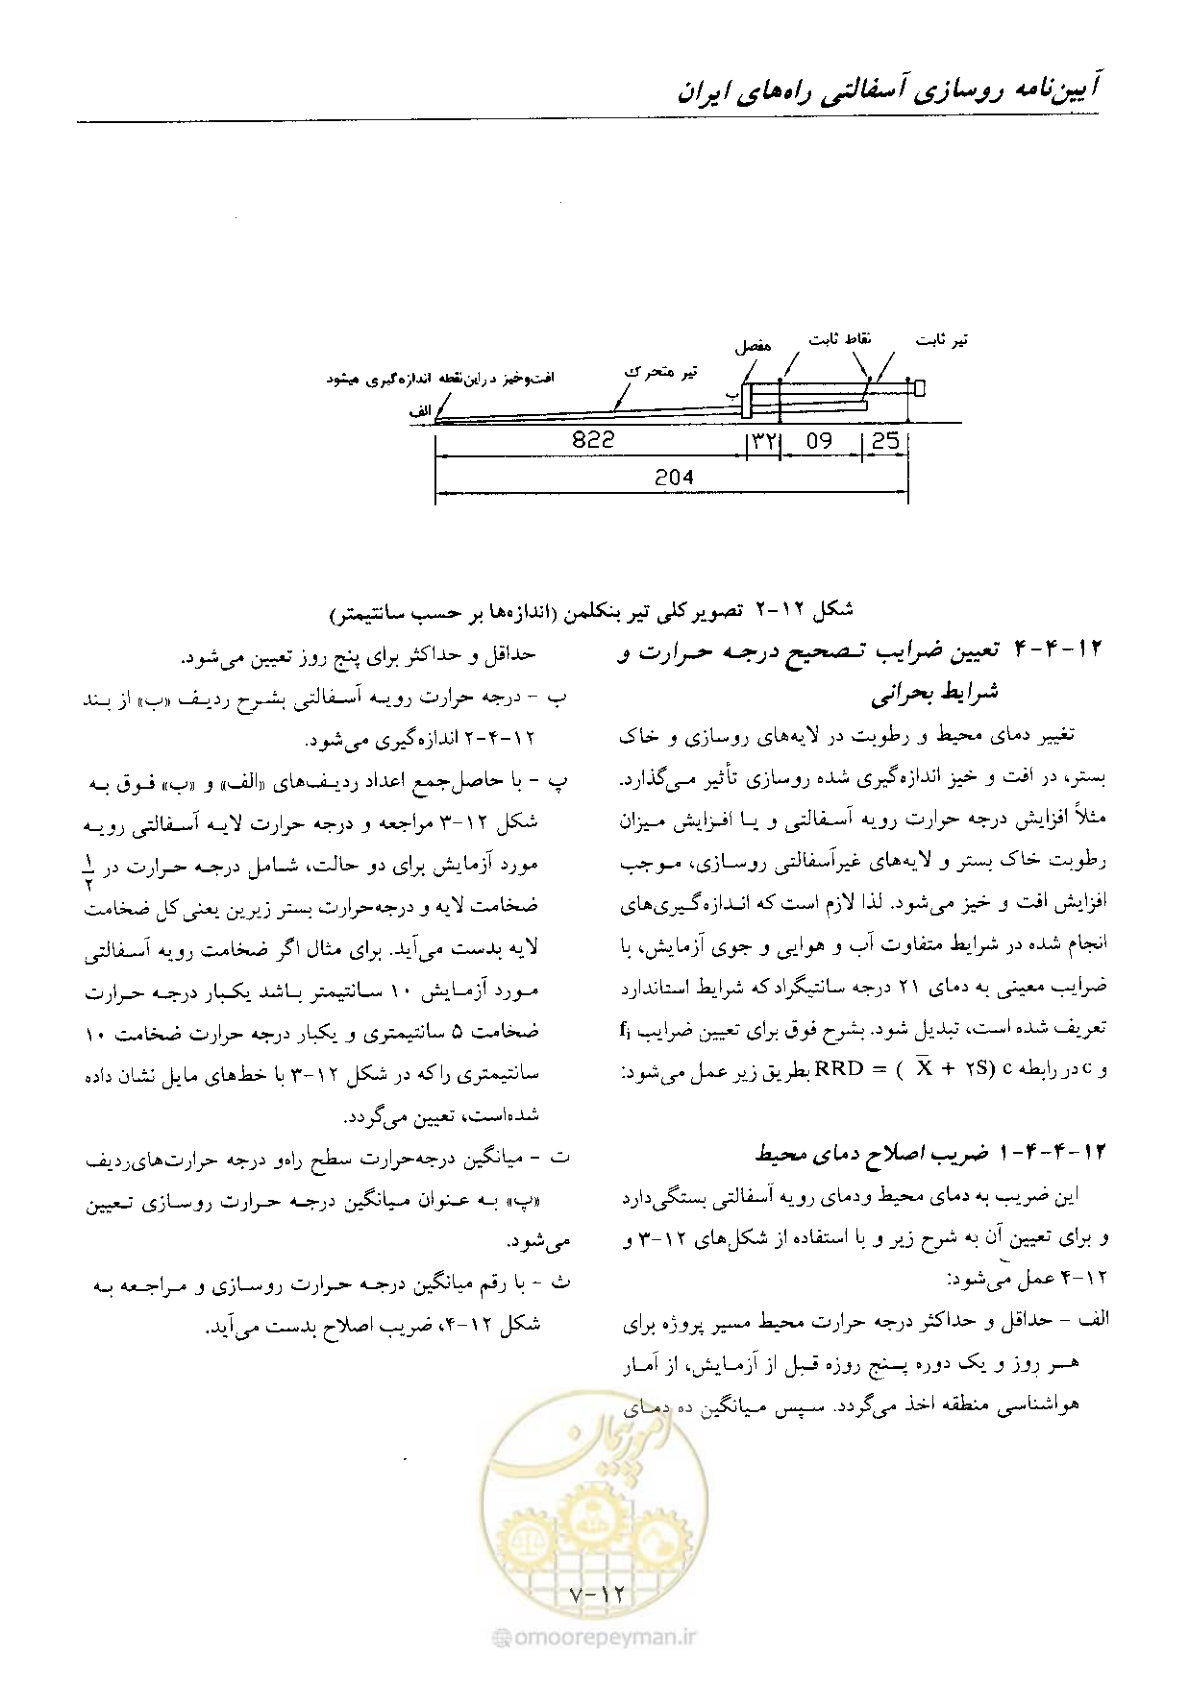 آیین‌نامه روسازی آسفالتی راه‌های ایران
تیر ثابت
نقاط ثابت
مفصل
تیر متحرک
افت‌وخیز دراین‌نقطه اندازه‌گیری میشود
ب
الف
822
۳۲
09
25
204
شکل ۱۲-۲ تصویر کلی تیر بنکلمن (اندازه‌ها بر حسب سانتیمتر)
۱۲-۴-۴ تعیین ضرایب تصحیح درجه حرارت و
شرایط بحرانی
تغییر دمای محیط و رطوبت در لایه‌های روسازی و خاک
بستر، در افت و خیز اندازه‌گیری شده روسازی تأثیر می‌گذارد.
مثلاً افزایش درجه حرارت رویه آسفالتی و یا افزایش میزان
رطوبت خاک بستر و لایه‌های غیرآسفالتی روسازی، موجب
افزایش افت و خیز می‌شود. لذا لازم است که اندازه‌گیری‌های
انجام شده در شرایط متفاوت آب و هوایی و جوی آزمایش، با
ضرایب معینی به دمای ۲۱ درجه سانتیگراد که شرایط استاندارد
تعریف شده است، تبدیل شود. بشرح فوق برای تعیین ضرایب fj
و c در رابطه RRD = ( X̅ + ۲S) c بطریق زیر عمل می‌شود:
۱۲-۴-۴-۱ ضریب اصلاح دمای محیط
این ضریب به دمای محیط ودمای رویه آسفالتی بستگی‌دارد
و برای تعیین آن به شرح زیر و با استفاده از شکل‌های ۱۲-۳ و
۱۲-۴ عمل می‌شود:
الف - حداقل و حداکثر درجه حرارت محیط مسیر پروژه برای
هر روز و یک دوره پنج روزه قبل از آزمایش، از آمار
هواشناسی منطقه اخذ می‌گردد. سپس میانگین ده دمای
حداقل و حداکثر برای پنج روز تعیین می‌شود.
ب - درجه حرارت رویه آسفالتی بشرح ردیف «ب» از بند
۱۲-۴-۲ اندازه‌گیری می‌شود.
پ - با حاصل‌جمع اعداد ردیف‌های «الف» و «ب» فوق به
شکل ۱۲-۳ مراجعه و درجه حرارت لایه آسفالتی رویه
مورد آزمایش برای دو حالت، شامل درجه حرارت در ۱/۲
ضخامت لایه و درجه‌حرارت بستر زیرین یعنی کل ضخامت
لایه بدست می‌آید. برای مثال اگر ضخامت رویه آسفالتی
مورد آزمایش ۱۰ سانتیمتر باشد یکبار درجه حرارت
ضخامت ۵ سانتیمتری و یکبار درجه حرارت ضخامت ۱۰
سانتیمتری را که در شکل ۱۲-۳ با خط‌های مایل نشان داده
شده‌است، تعیین می‌گردد.
ت - میانگین درجه‌حرارت سطح راه‌و درجه حرارت‌های‌ردیف
«پ» به عنوان میانگین درجه حرارت روسازی تعیین
می‌شود.
ث - با رقم میانگین درجه حرارت روسازی و مراجعه به
شکل ۱۲-۴، ضریب اصلاح بدست می‌آید.
امور پیمان
۱۲-۷
@omoorepeyman.ir